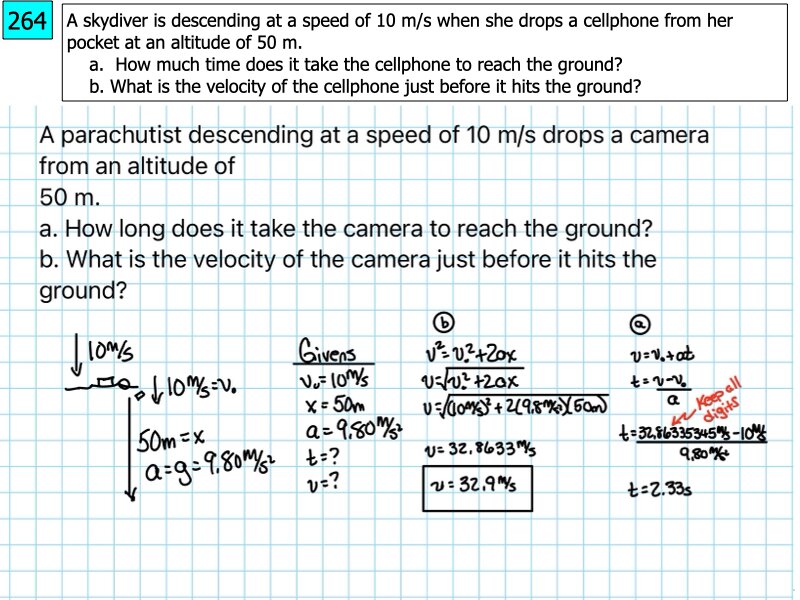 264
A skydiver is descending at a speed of 10 m/s when she drops a cellphone from her
pocket at an altitude of 50 m.
a. How much time does it take the cellphone to reach the ground?
b. What is the velocity of the cellphone just before it hits the ground?
A parachutist descending at a speed of 10 m/s drops a camera
from an altitude of
50 m.
a. How long does it take the camera to reach the ground?
b. What is the velocity of the camera just before it hits the
ground?
10m/s
10m/s=v₀
50m=x
a=g=9.80m/s²
Givens
v₀=10m/s
x=50m
a=9.80m/s²
t=?
v=?
b
v²=v₀²+2ax
v=√v₀²+2ax
v=√(10m/s)²+2(9.8m/s²)(50m)
v=32.8633m/s
v=32.9m/s
a
v=v₀+at
t=v-v₀
a
Keep all
digits
t=32.86335345m/s-10m/s
9.80m/s²
t=2.33s